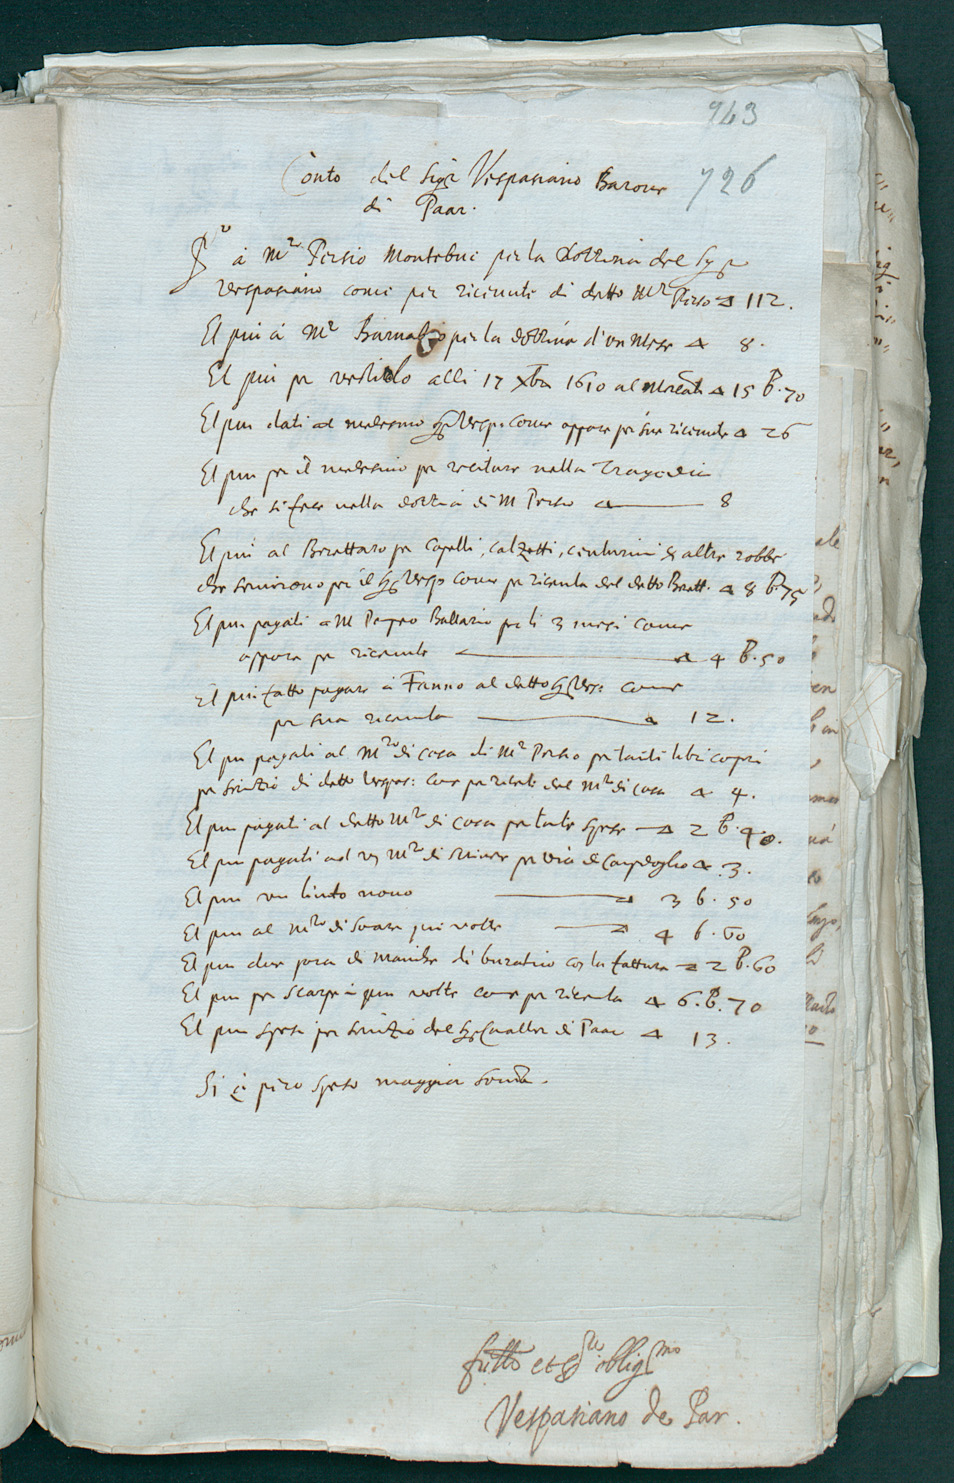 943
726
Conto del sigr Vespasiano Barone
di Paar.
à Mro Persio Montebuc per la dozzina del Sigr
Vespasiano come per ricevute di detto Mr Persio ▵ 112.
El piu à Mr Barnabeo per la dozzina d'un Mese ▵ 8.
El piu per vestirlo alli 17 Xbre 1610 al ▵ 15 b. 70
El piu dati al medesmo Sigr Vesp. come appare per sue ricevute ▵ 26
El piu per il medesimo per recitare nella Tragedia
che si fece nella dozzina di M Persio ▵ 8
El piu al Berettaro per Capelli, calzetti, centurini et altre robbe
che servirono per il Sigr Vesp come per ricevuta del detto Berett. ▵ 8 b. 75
El piu pagati a M Ballarino per li 3 mesi come
appare per ricevute ▵ 4 b. 50
El piu fatto pagare à Fanno al detto Sigr Vesp: come
per sua ricevuta ▵ 12.
El piu pagati al Mro di casa di Mr Persio per tanti libri
per servitio di detto Vespas: come per del Mro di casa ▵ 4.
El piu pagati al detto Mro di casa per tante spese ▵ 2 b. 40.
El piu pagati ad un Mro di per via di Campidoglio ▵ 3.
El piu un liuto novo ▵ 3 b. 50
El piu al Mro di piu volte ▵ 4 b. 60
El piu due para di Maniche di buratino con la fattura ▵ 2 b. 60
El piu per scarpe in piu volte come per ricevuta ▵ 6. b. 70
El piu spesi per servitio del Sigr Cavallier di Paar ▵ 13.
Si è pero speso maggior somma.
et obligmo
Vespasiano de Par.